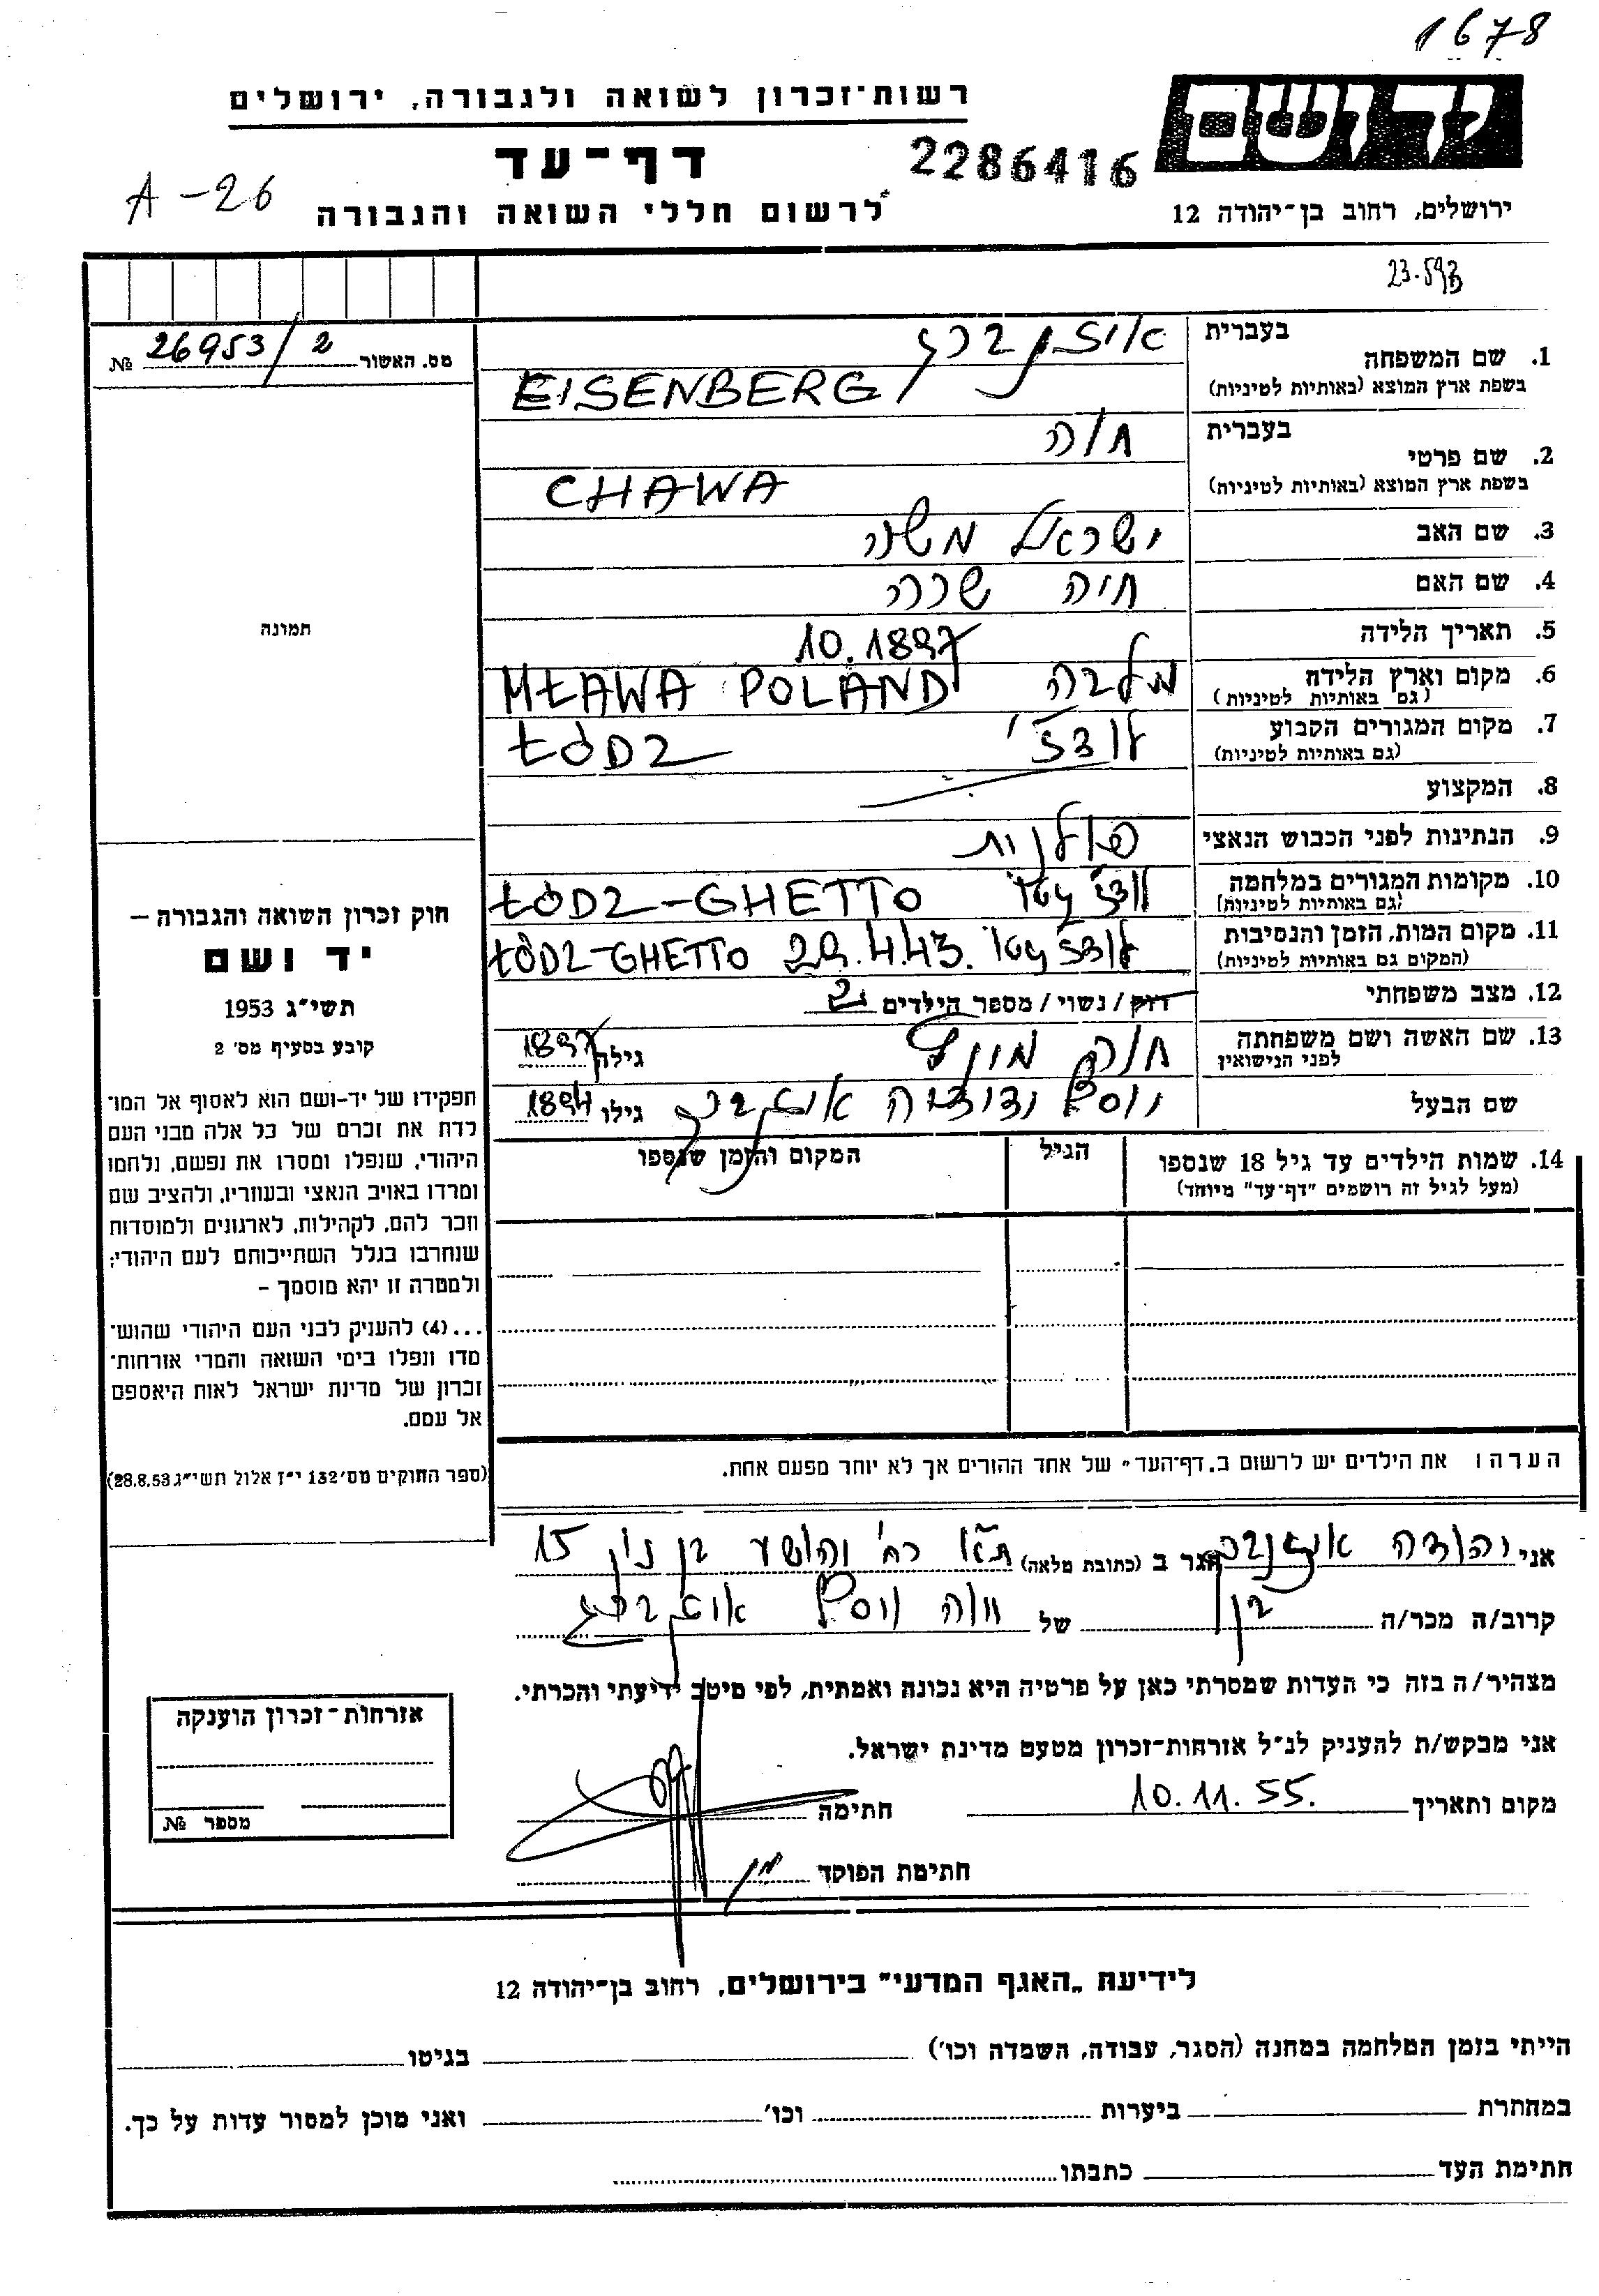 1678
רשות-זכרון לשואה ולגבורה, ירושלים
יד ושם
דף-עד
2286416
A-26
לרשום חללי השואה והגבורה
ירושלים, רחוב בן-יהודה 12
23.593
מס. האשור 26953/2 №
1. שם המשפחה
בעברית
אייזנברג
בשפת ארץ המוצא (באותיות לטיניות)
EISENBERG
2. שם פרטי
בעברית
חוה
בשפת ארץ המוצא (באותיות לטיניות)
CHAWA
3. שם האב ישראל משה
4. שם האם חיה שרה
5. תאריך הלידה 10.1897
6. מקום וארץ הלידה מלבה MŁAWA POLAND
(גם באותיות לטיניות)
7. מקום המגורים הקבוע לודז' ŁÓDZ
(גם באותיות לטיניות)
8. המקצוע
9. הנתינות לפני הכבוש הנאצי פולנית
10. מקומות המגורים במלחמה לודז' גטו ŁÓDZ-GHETTO
(גם באותיות לטיניות)
11. מקום המות, הזמן והנסיבות לודז' גטו 29.4.43. ŁÓDZ-GHETTO
(המקום גם באותיות לטיניות)
12. מצב משפחתי רווק/נשוי/מספר הילדים 2
13. שם האשה ושם משפחתה
לפני הנישואין
חוה גילה 1897
שם הבעל יוסף אייזנברג גילו 1894
14. שמות הילדים עד גיל 18 שנספו
(מעל לגיל זה רושמים "דף-עד" מיוחד)
הגיל
המקום והזמן שנספו
הערה: את הילדים יש לרשום ב„דף-העד" של אחד ההורים אך לא יותר מפעם אחת.
תמונה
חוק זכרון השואה והגבורה –
יד ושם
תשי"ג 1953
קובע בסעיף מס' 2
תפקידו של יד-ושם הוא לאסוף אל המו־
לדת את זכרם של כל אלה מבני העם
היהודי, שנפלו ומסרו את נפשם, נלחמו
ומרדו באויב הנאצי ובעוזריו, ולהציב שם
וזכר להם, לקהילות, לארגונים ולמוסדות
שנחרבו בגלל השתייכותם לעם היהודי;
ולמטרה זו יהא מוסמך –
...(4) להעניק לבני העם היהודי שהוש־
מדו ונפלו בימי השואה והמרי אזרחות־
זכרון של מדינת ישראל לאות היאספם
אל עמם.
(ספר החוקים מס' 132 י"ז אלול תשי"ג 28.8.53)
אני יהודה אייזנברג הגר ב (כתובת מלאה) ת"א רח' יהושע בן נון 15
קרוב/ה מכר/ה בן של חוה יוסף אייזנברג
מצהיר/ה בזה כי העדות שמסרתי כאן על פרטיה היא נכונה ואמתית, לפי מיטב ידיעתי והכרתי.
אני מבקש/ת להעניק לנ"ל אזרחות-זכרון מטעם מדינת ישראל.
מקום ותאריך 10.11.55. חתימה
חתימת הפוקד
אזרחות-זכרון הוענקה
מספר №
לידיעת „האגף המדעי" בירושלים, רחוב בן-יהודה 12
הייתי בזמן המלחמה במחנה (הסגר, עבודה, השמדה וכו') בגיטו
במחתרת ביערות וכו' ואני מוכן למסור עדות על כך.
חתימת העד כתבתו